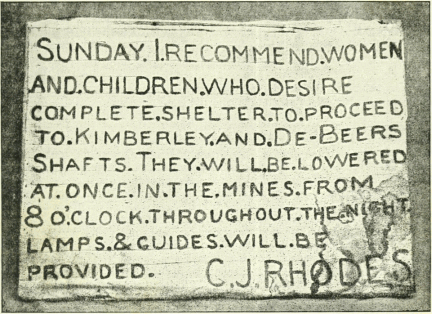 SUNDAY. I.RECOMMEND.WOMEN
AND.CHILDREN.WHO.DESIRE
COMPLETE.SHELTER.TO.PROCEED
TO.KIMBERLEY.AND.DE-BEERS
SHAFTS.THEY.WILL.BE.LOWERED
AT.ONCE.IN.THE.MINES.FROM
8 O'CLOCK.THROUGHOUT.THE.NIGHT.
LAMPS.&.GUIDES.WILL.BE
PROVIDED. C.J.RHODES